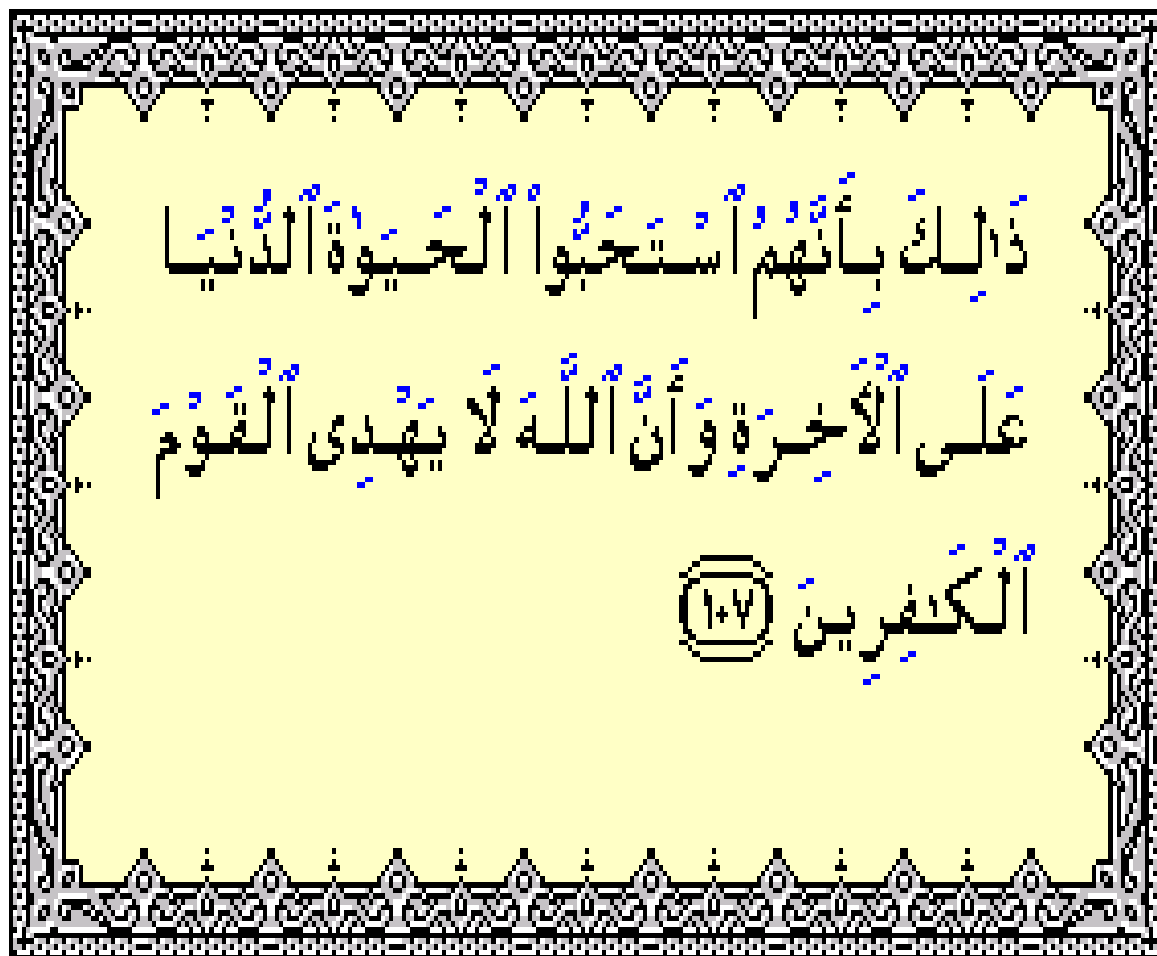 ذَٰلِكَ بِأَنَّهُمُ ٱسْتَحَبُّوا۟ ٱلْحَيَوٰةَ ٱلدُّنْيَا
عَلَى ٱلْأَخِرَةِ وَأَنَّ ٱللَّهَ لَا يَهْدِى ٱلْقَوْمَ
ٱلْكَـٰفِرِينَ ١٠٧